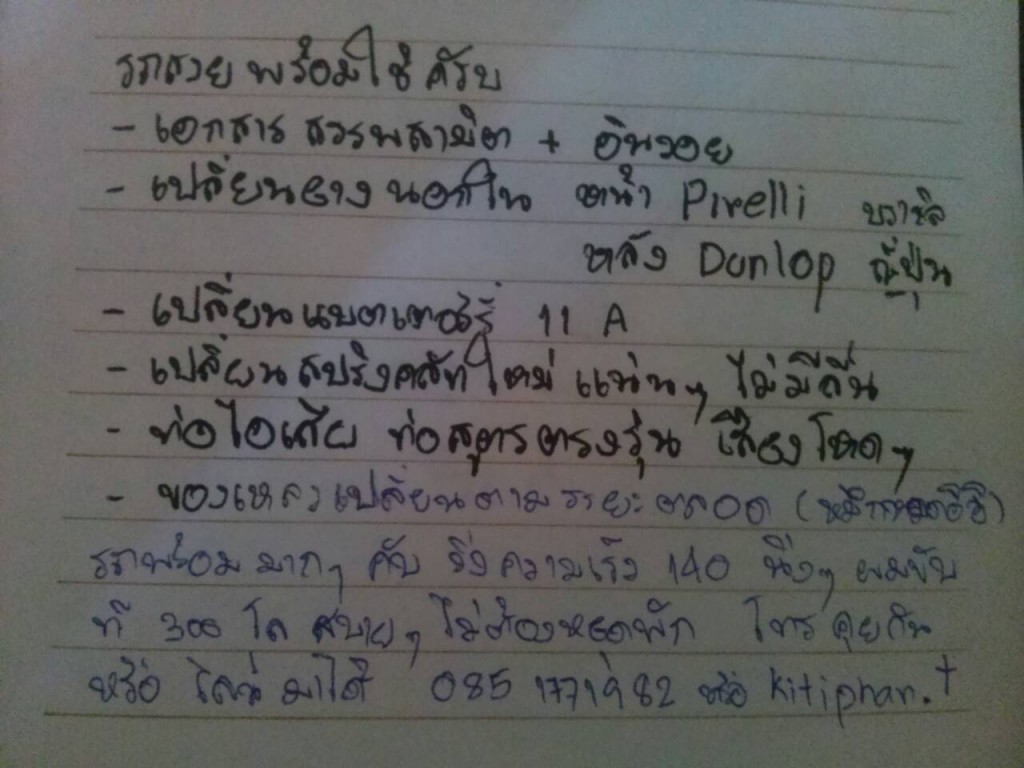 รถสวย พร้อมใช้ ครับ
- เอกสาร สรรพสามิต + อินวอย
- เปลี่ยนยาง นอกใน หน้า Pirelli บราซิล
หลัง Dunlop ญี่ปุ่น
- เปลี่ยนแบตเตอรี่ 11 A
- เปลี่ยนสปริงคลัทใหม่ แน่นๆ ไม่มีลื่น
- ท่อไอเสีย ท่อสูตรตรงรุ่น เสียงโหดๆ
- ของเหลวเปลี่ยนตามระยะตลอด
รถพร้อมมากๆ คับ วิ่งความเร็ว 140 นิ่งๆ ผมขับ
ที 300 โล สบายๆ ไม่ต้องหยุดพัก โทรคุยกัน
หรือ ไลน์ มาได้ 085 1771982 หรือ kitiphan.t